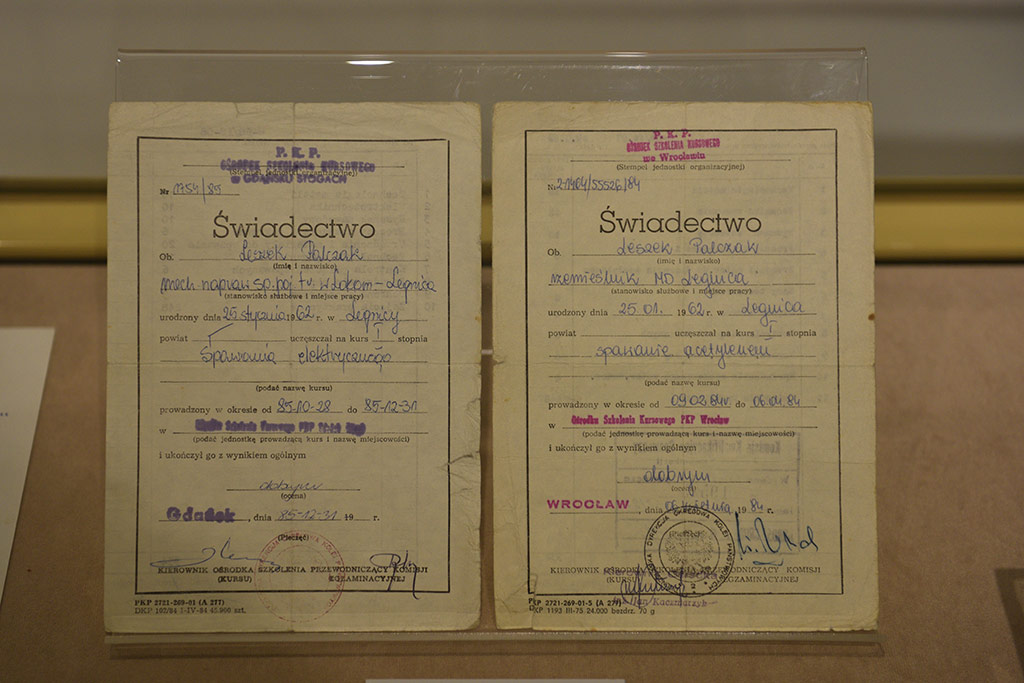 P. K. P.
OŚRODEK SZKOLENIA KURSOWEGO
W GDAŃSKU STOGACH
(Stempel jednostki organizacyjnej)
Nr 1754/85
Świadectwo
Ob. Leszek Palczak
(imię i nazwisko)
mech napraw sp. poj. tr. w Lokom - Legnica
(stanowisko służbowe i miejsce pracy)
urodzony dnia 25 stycznia 1962 r. w Legnicy
powiat uczęszczał na kurs I stopnia
Spawania elektrycznego
(podać nazwę kursu)
prowadzony w okresie od 85-10-28 do 85-12-31
w Szkolenia Kursowego PKP
(podać jednostkę prowadzącą kurs i nazwę miejscowości)
i ukończył go z wynikiem ogólnym
dobrym
(ocena)
Gdańsk, dnia 85-12-31 19 r.
(Pieczęć)
KIEROWNIK OŚRODKA SZKOLENIA PRZEWODNICZĄCY KOMISJI
(KURSU) EGZAMINACYJNEJ
PKP 2721-269-01 (A 277)
P. K. P.
OŚRODEK SZKOLENIA KURSOWEGO
we Wrocławiu
(Stempel jednostki organizacyjnej)
Nr 2-1464/55526/84
Świadectwo
Ob. Leszek Palczak
(imię i nazwisko)
rzemieślnik MD Legnica
(stanowisko służbowe i miejsce pracy)
urodzony dnia 25 01. 1962 r. w Legnica
powiat uczęszczał na kurs I stopnia
spawanie acetylenem
(podać nazwę kursu)
prowadzony w okresie od 09.02.84r. do 06.04.84
w Ośrodku Szkolenia Kursowego PKP Wrocław
(podać jednostkę prowadzącą kurs i nazwę miejscowości)
i ukończył go z wynikiem ogólnym
dobrym
(ocena)
WROCŁAW, dnia 06 kwietnia 1984 r.
DYREKCJA OKRĘGOWA KOLEI PAŃSTWOWYCH
KIEROWNIK OŚRODKA SZKOLENIA PRZEWODNICZĄCY KOMISJI
(KURSU) EGZAMINACYJNEJ
Kaczmarzyk
PKP 2721-269-01-5 (A 277)
DKP 1193 III-75 24.000 bezdrz. 70 g